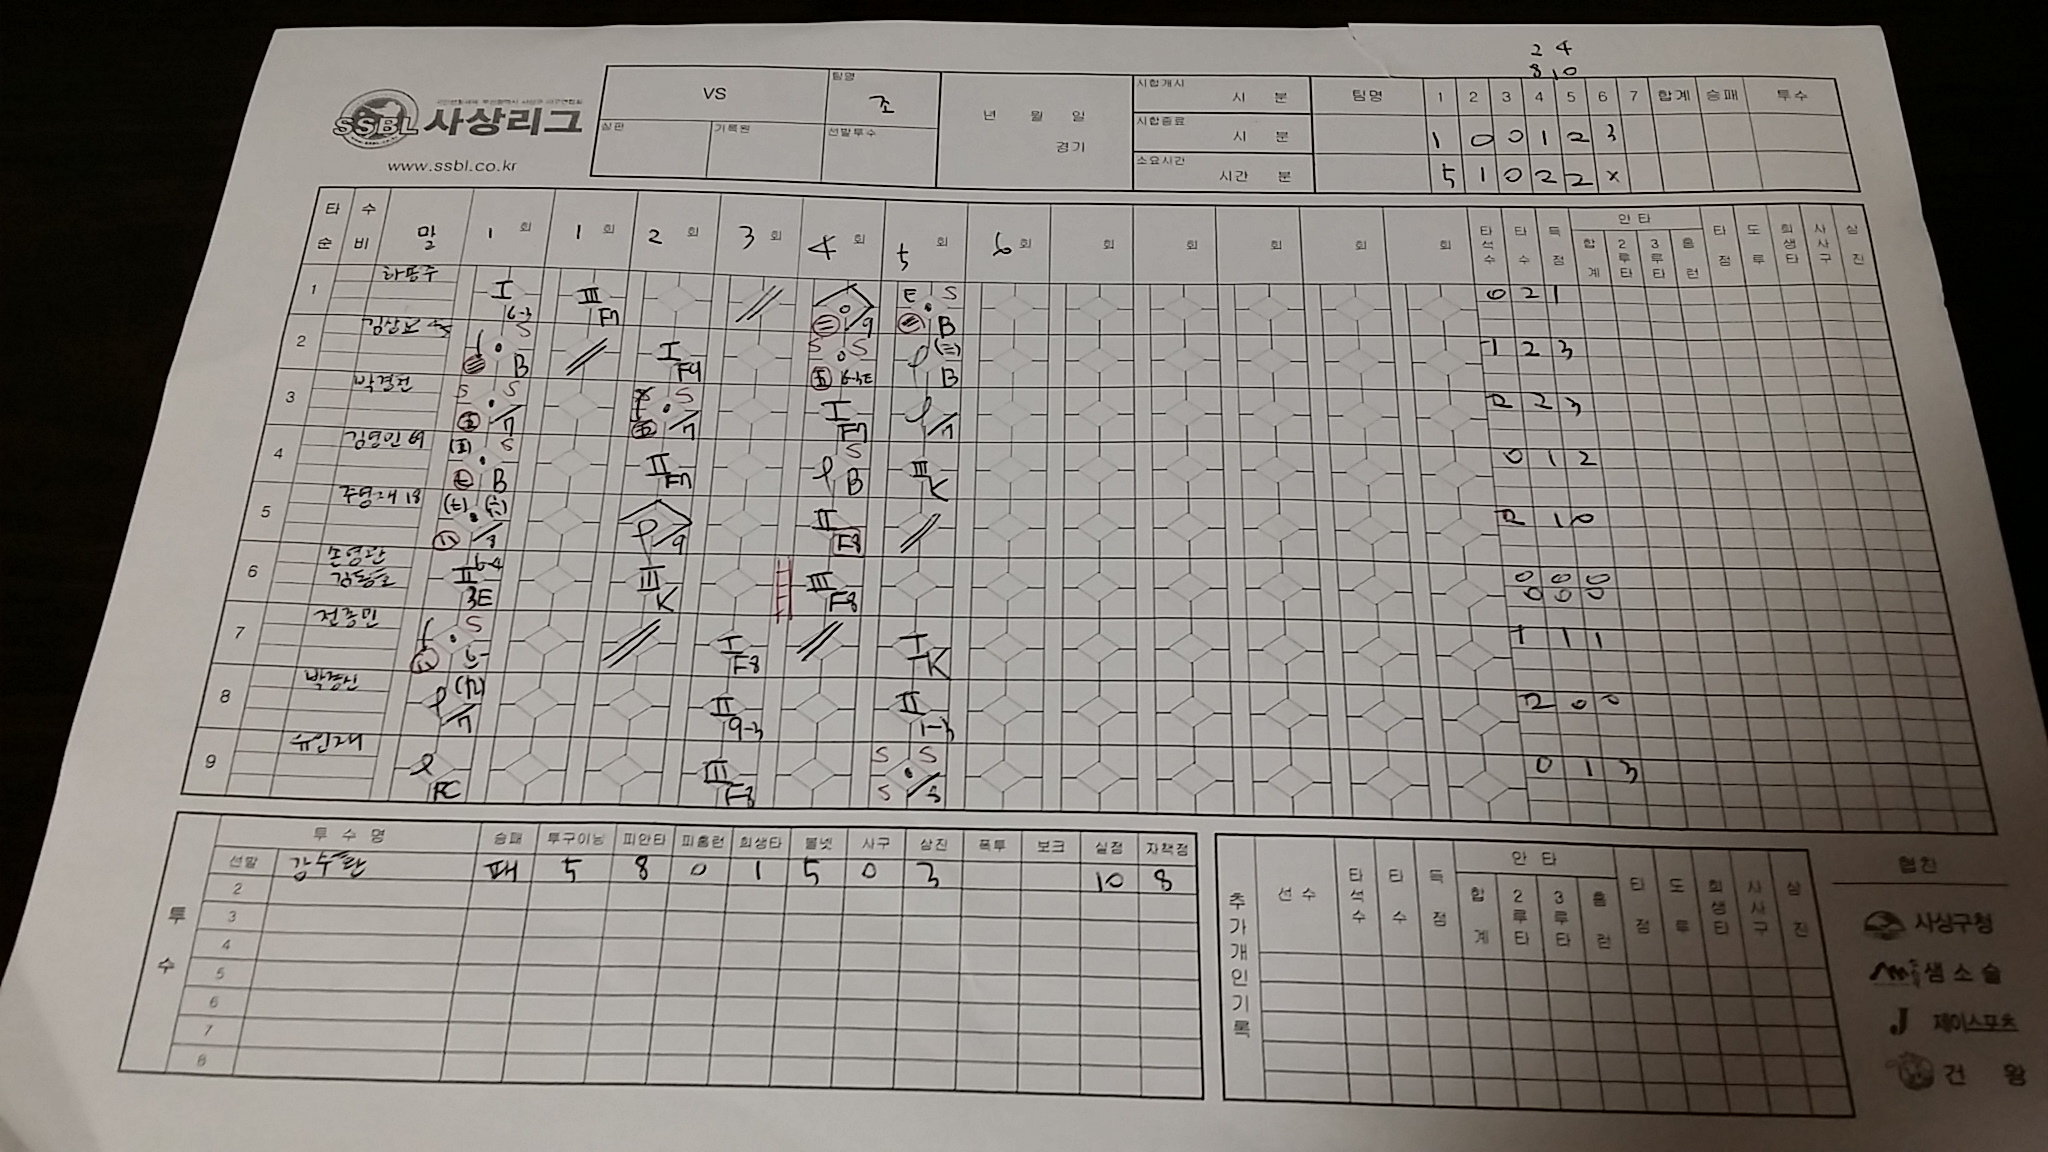 2 4
8 10
SSBL 사상리그
www.ssbl.co.kr
VS
팀명
조
심판
기록원
선발투수
년 월 일
경기
시합개시
시 분
시합종료
시 분
소요시간
시간 분
팀명 1 2 3 4 5 6 7 합계 승패 투수
1 0 0 1 2 3
5 1 0 2 2 x
타순 수비 말 1회 1회 2회 3회 4회 5회 6회 회 회 회 회 회 타석수 타수 득점 안타 합계 2루타 3루타 홈런 타점 도루 희생타 사사구 삼진
1 I 6-3 III F7 // /9 E S B 0 2 1
2 S B // I F4 S S 6-3E B 1 2 3
3 박경전 S S /7 S /7 I F7 /7 2 2 3
4 김영민 69 S B II F7 S B III K 0 1 2
5 주영재 18 /8 /9 II F8 // 2 1 0
6 손영관 II 6-4 3E III K III F8 0 0 0
김동호 0 0 0
7 전종민 S // I F8 // I K 1 1 1
8 박경신 /7 II 9-3 II 1-3 2 0 0
9 유인재 FC III F8 S S S /8 0 1 3
투수
투수명 승패 투구이닝 피안타 피홈런 희생타 볼넷 사구 삼진 폭투 보크 실점 자책점
선발 강수란 패 5 8 0 1 5 0 3 10 8
2
3
4
5
6
7
8
추가개인기록
선수 타석수 타수 득점 안타 합계 2루타 3루타 홈런 타점 도루 희생타 사사구 삼진
협찬
사상구청
샘소슬
J 제이스포츠
건왕